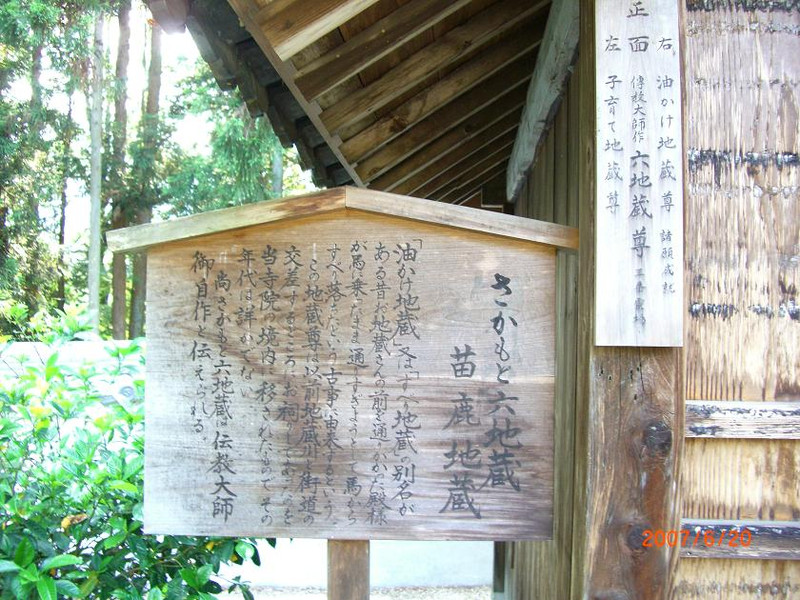 右 油かけ地蔵尊 諸願成就
正面 傳教大師作 六地蔵尊
左 子育て地蔵尊
さかもと六地蔵
苗鹿地蔵
「油かけ地蔵」又は「すべり地蔵」の別名が
ある昔お地蔵さんの前を通りかかった殿様
が馬に乗ったまま通りすぎようとして馬から
すべり落ちたという古事に由来するという。
この地蔵尊は以前地蔵川と街道の
交差するところにお祠りしてあったのを
当寺院の境内に移されたもので その
年代は詳かでない
尚さかもと六地蔵は伝教大師
御自作と伝えられる。
2007/6/20